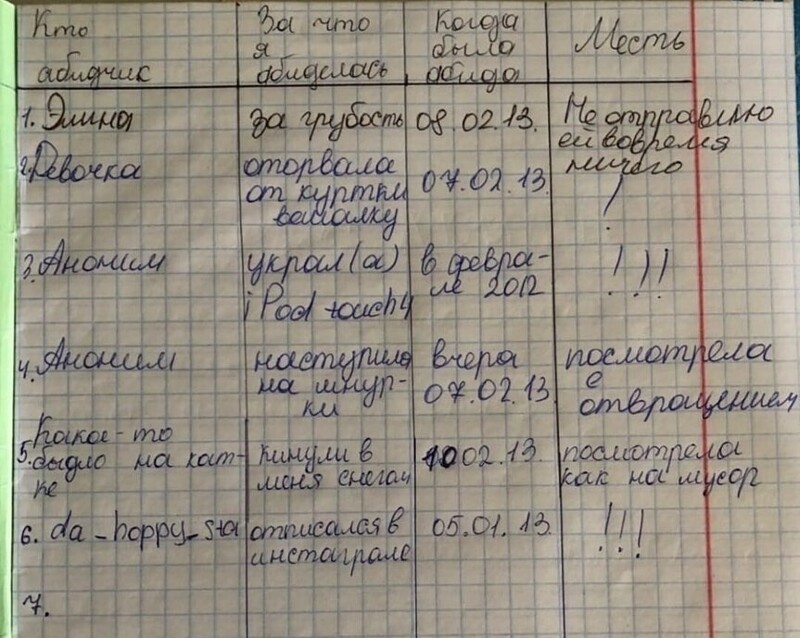 Кто абидчик
За что я абиделась
Когда была абида
Месть
1. Элина
за грубость
08.02.13.
Не отправлю ей вовремя ничего
2. Девочка
оторвала от куртки вешалку
07.02.13.
!
3. Аноним
украл(а) iPod touch4
в феврале 2012
!!!
4. Аноним
наступила на шнурки
вчера 07.02.13
посмотрела с отвращением
5. Какое-то быдло на катке
кинули в меня снегом
10 02.13.
посмотрела как на мусор
6. da_hoppy_sta
отписался в инстаграме
05.01.13.
!!!
7.